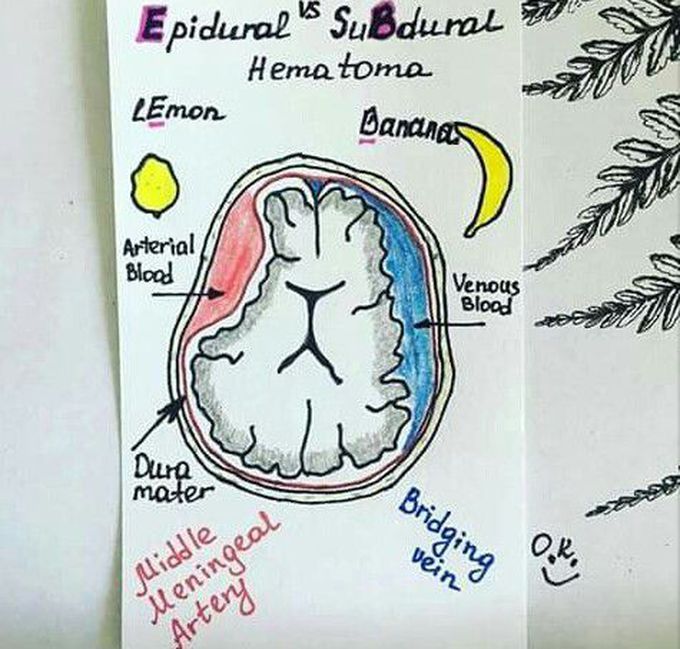 Epidural vs SuBdural
Hematoma
LEmon
Banana
Arterial
Blood
Venous
Blood
Dura
mater
Middle
Meningeal
Artery
Bridging
vein
O.K.